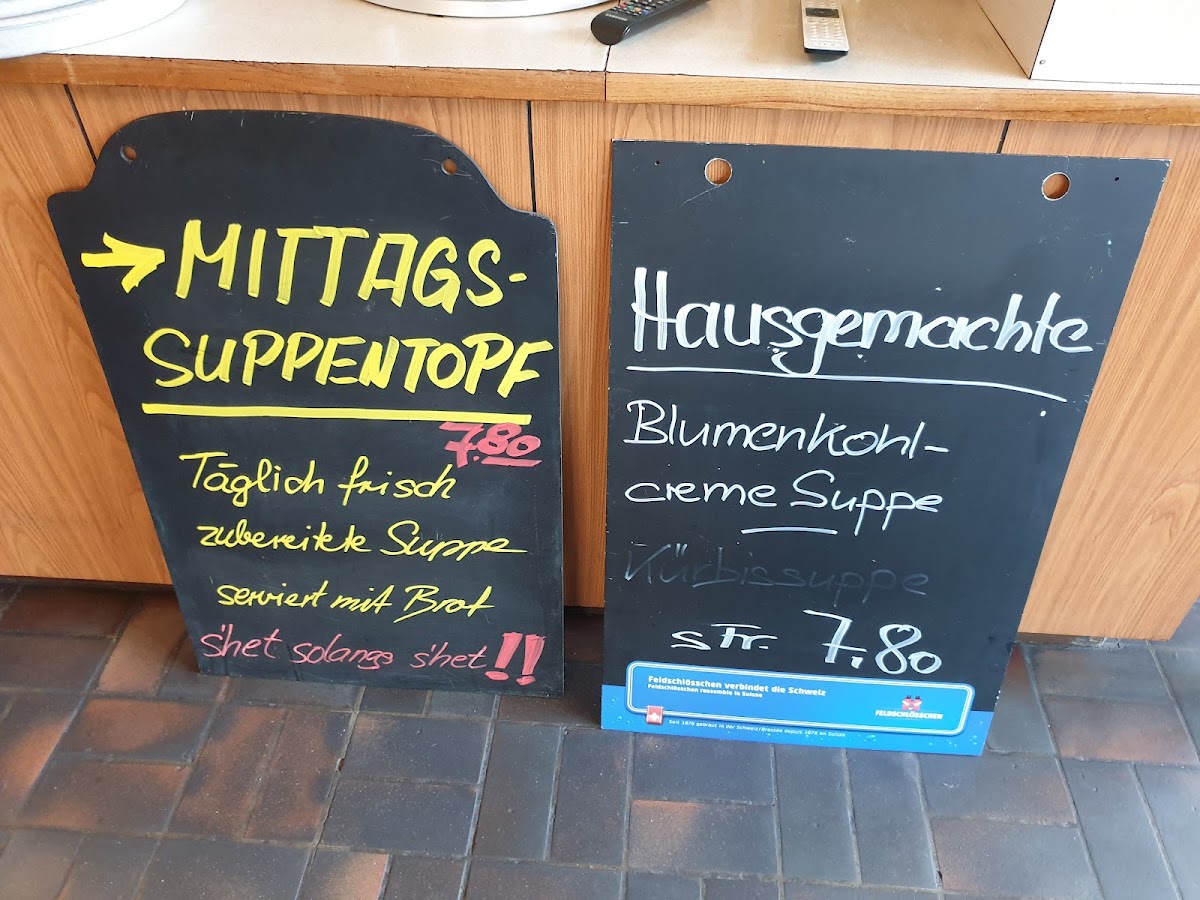 → MITTAGS-
SUPPENTOPF
7.80
Täglich frisch
zubereitete Suppe
serviert mit Brot
s'het solangs s'het!!
Hausgemachte
Blumenkohl-
creme Suppe
Kürbissuppe
sFr. 7.80
Feldschlösschen verbindet die Schweiz
Feldschlösschen rassemble la Suisse
FELDSCHLÖSSCHEN
Seit 1876 gebraut in der Schweiz/Brassée depuis 1876 en Suisse